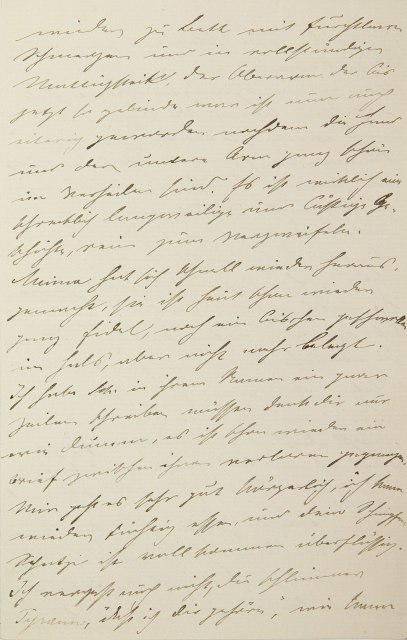 wieder zu Bett mit furchtbaren
Schmerzen und in vollständiger
Mattigkeit, der Oberarm der bis
jetzt so gelinde war ist nun auch
eiterig geworden nachdem die Hand
und der untere Arm ganz schön
im Verheilen sind. Es ist wirklich eine
schrecklich langweilige und lästige Ge-
schichte, rein zum verzweifeln.
hat sich schnell wieder heraus-
gemacht, sie ist heut schon wieder
ganz fidel, noch ein bischen geschwollen
im Hals, aber nicht mehr belegt.
Ich habe in ihrem Namen ein paar
Zeilen schreiben müssen denk dir nur
wie dumm, es ist schon wieder ein
Brief zwischen ihnen verloren gegangen.
Mir geht es sehr gut körperlich, ich kann
wieder tüchtig essen, und dein
ist vollkommen überflüssig.
Ich vergess auch nicht, du schlimmer
Tyrann, "daß ich dir gehöre", wie kann